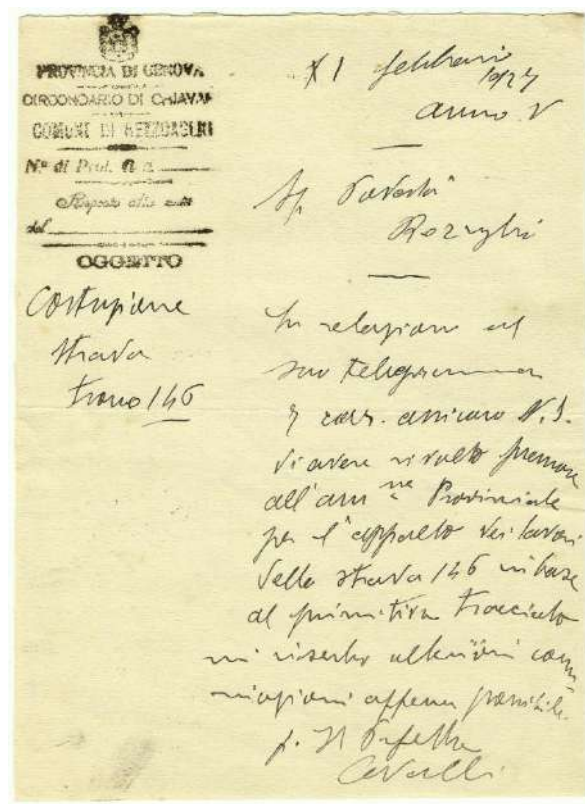 PROVINCIA DI GENOVA
CIRCONDARIO DI CHIAVARI
COMUNE DI REZZOAGLIO
Nº di Prot.
Risposta alla nota
del
OGGETTO
Costruzione
strada
trono 146
XI febbraio
1927
anno V
Sp Podestà
Rezzoaglio
In relazione al
suo telegramma
7 corr. assicuro V.S.
di avere rivolto premure
all'amm.ne Provinciale
per l'appalto dei lavori
della strada 146 in base
al primitivo tracciato
mi riserbo ulteriori comu
nicazioni appena possibile.
p. Il Prefetto
Cavalli